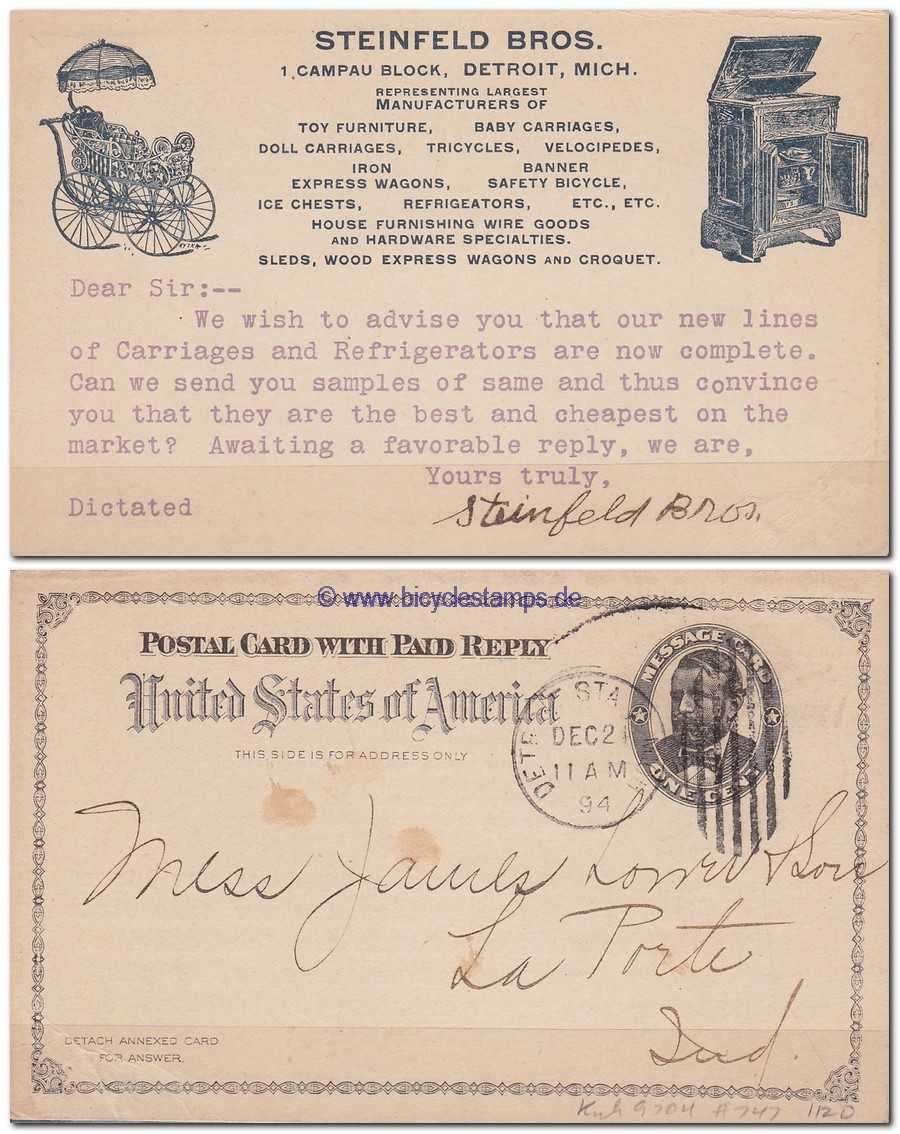 STEINFELD BROS.
1, CAMPAU BLOCK, DETROIT, MICH.
REPRESENTING LARGEST
MANUFACTURERS OF
TOY FURNITURE, BABY CARRIAGES,
DOLL CARRIAGES, TRICYCLES, VELOCIPEDES,
IRON BANNER
EXPRESS WAGONS, SAFETY BICYCLE,
ICE CHESTS, REFRIGEATORS, ETC., ETC.
HOUSE FURNISHING WIRE GOODS
AND HARDWARE SPECIALTIES.
SLEDS, WOOD EXPRESS WAGONS AND CROQUET.
Dear Sir:--
We wish to advise you that our new lines
of Carriages and Refrigerators are now complete.
Can we send you samples of same and thus convince
you that they are the best and cheapest on the
market? Awaiting a favorable reply, we are,
Yours truly,
Dictated
Steinfeld Bros.
© www.bicyclestamps.de
POSTAL CARD WITH PAID REPLY
United States of America
THIS SIDE IS FOR ADDRESS ONLY
MESSAGE CARD
ONE CENT
DEC 2
11 AM
94
Mess James & Son
La Porte
Ind.
DETACH ANNEXED CARD
FOR ANSWER.
9704 #747 112D